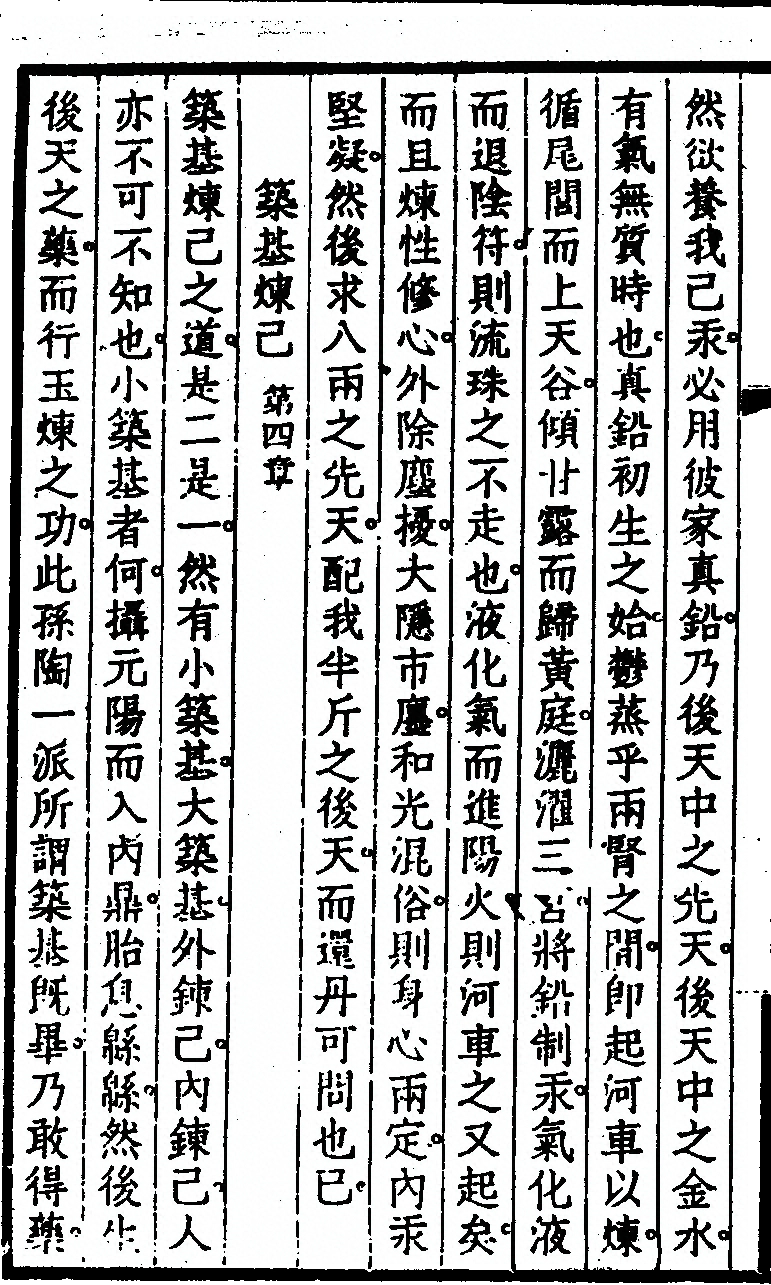 然欲養我己汞。必用彼家真鉛。乃後天中之先天。後天中之金水。
有氣無質時也。真鉛初生之始。鬱蒸乎兩腎之間。即起河車以煉。
循尾閭而上天谷。傾甘露而歸黃庭。灑濯三宮。將鉛制汞。氣化液
而退陰符。則流珠之不走也。液化氣而進陽火則河車之又起矣。
而且煉性修心。外除塵擾。大隱市廛。和光混俗。則身心兩定。內汞
堅凝。然後求八兩之先天。配我半斤之後天。而還丹可問也已。
築基煉己 第四章
築基煉己之道。是二是一。然有小築基。大築基。外鍊己。內鍊己。人
亦不可不知也。小築基者何。攝元陽而入內鼎。胎息綿綿。然後生
後天之藥。而行玉煉之功。此孫陶一派所謂築基既畢。乃敢得藥。